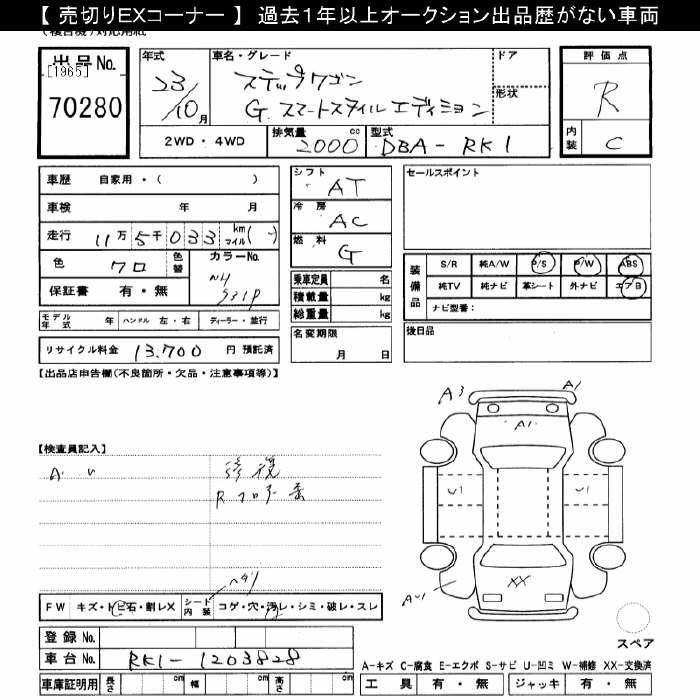 【 売切りEXコーナー 】 過去１年以上オークション出品歴がない車両
出品No.
[1965]
70280
年式
23/10月
車名・グレード
ステップワゴン
G. スマートスタイル エディション
ドア
形状
2WD ・ 4WD
排気量 2000 cc
型式 DBA- RK1
評価点
R
内装 C
車歴 自家用・( )
車検 年 月
走行 11万 5千 033 km マイル( )
色 クロ 色替
カラーNo. NH 731P
保証書 有・無
シフト AT
冷房 AC
燃料 G
乗車定員 名
積載量 kg
総重量 kg
セールスポイント
装備品
S/R 純A/W P/S P/W ABS
純TV 純ナビ 革シート 外ナビ エアB
ナビ型番：
モデル年式 年 ハンドル 左・右 ディーラー・並行
名変期限
月 日
後日品
リサイクル料金 13,700 円 預託済
【出品店申告欄(不良箇所・欠品・注意事項等)】
A3
A1
A1
【検査員記入】
修復
U1
U1
XX
FW キズ・トビ石・割レX
シート内装 コゲ・穴・汚レ・シミ・破レ・スレ
登録 No.
車台 No. RK1-1203828
スペア
A-キズ C-腐食 E-エクボ S-サビ U-凹ミ W-補修 XX-交換済
車庫証明用 長さ cm 幅 cm 高さ cm
工具 有・無 ジャッキ 有・無